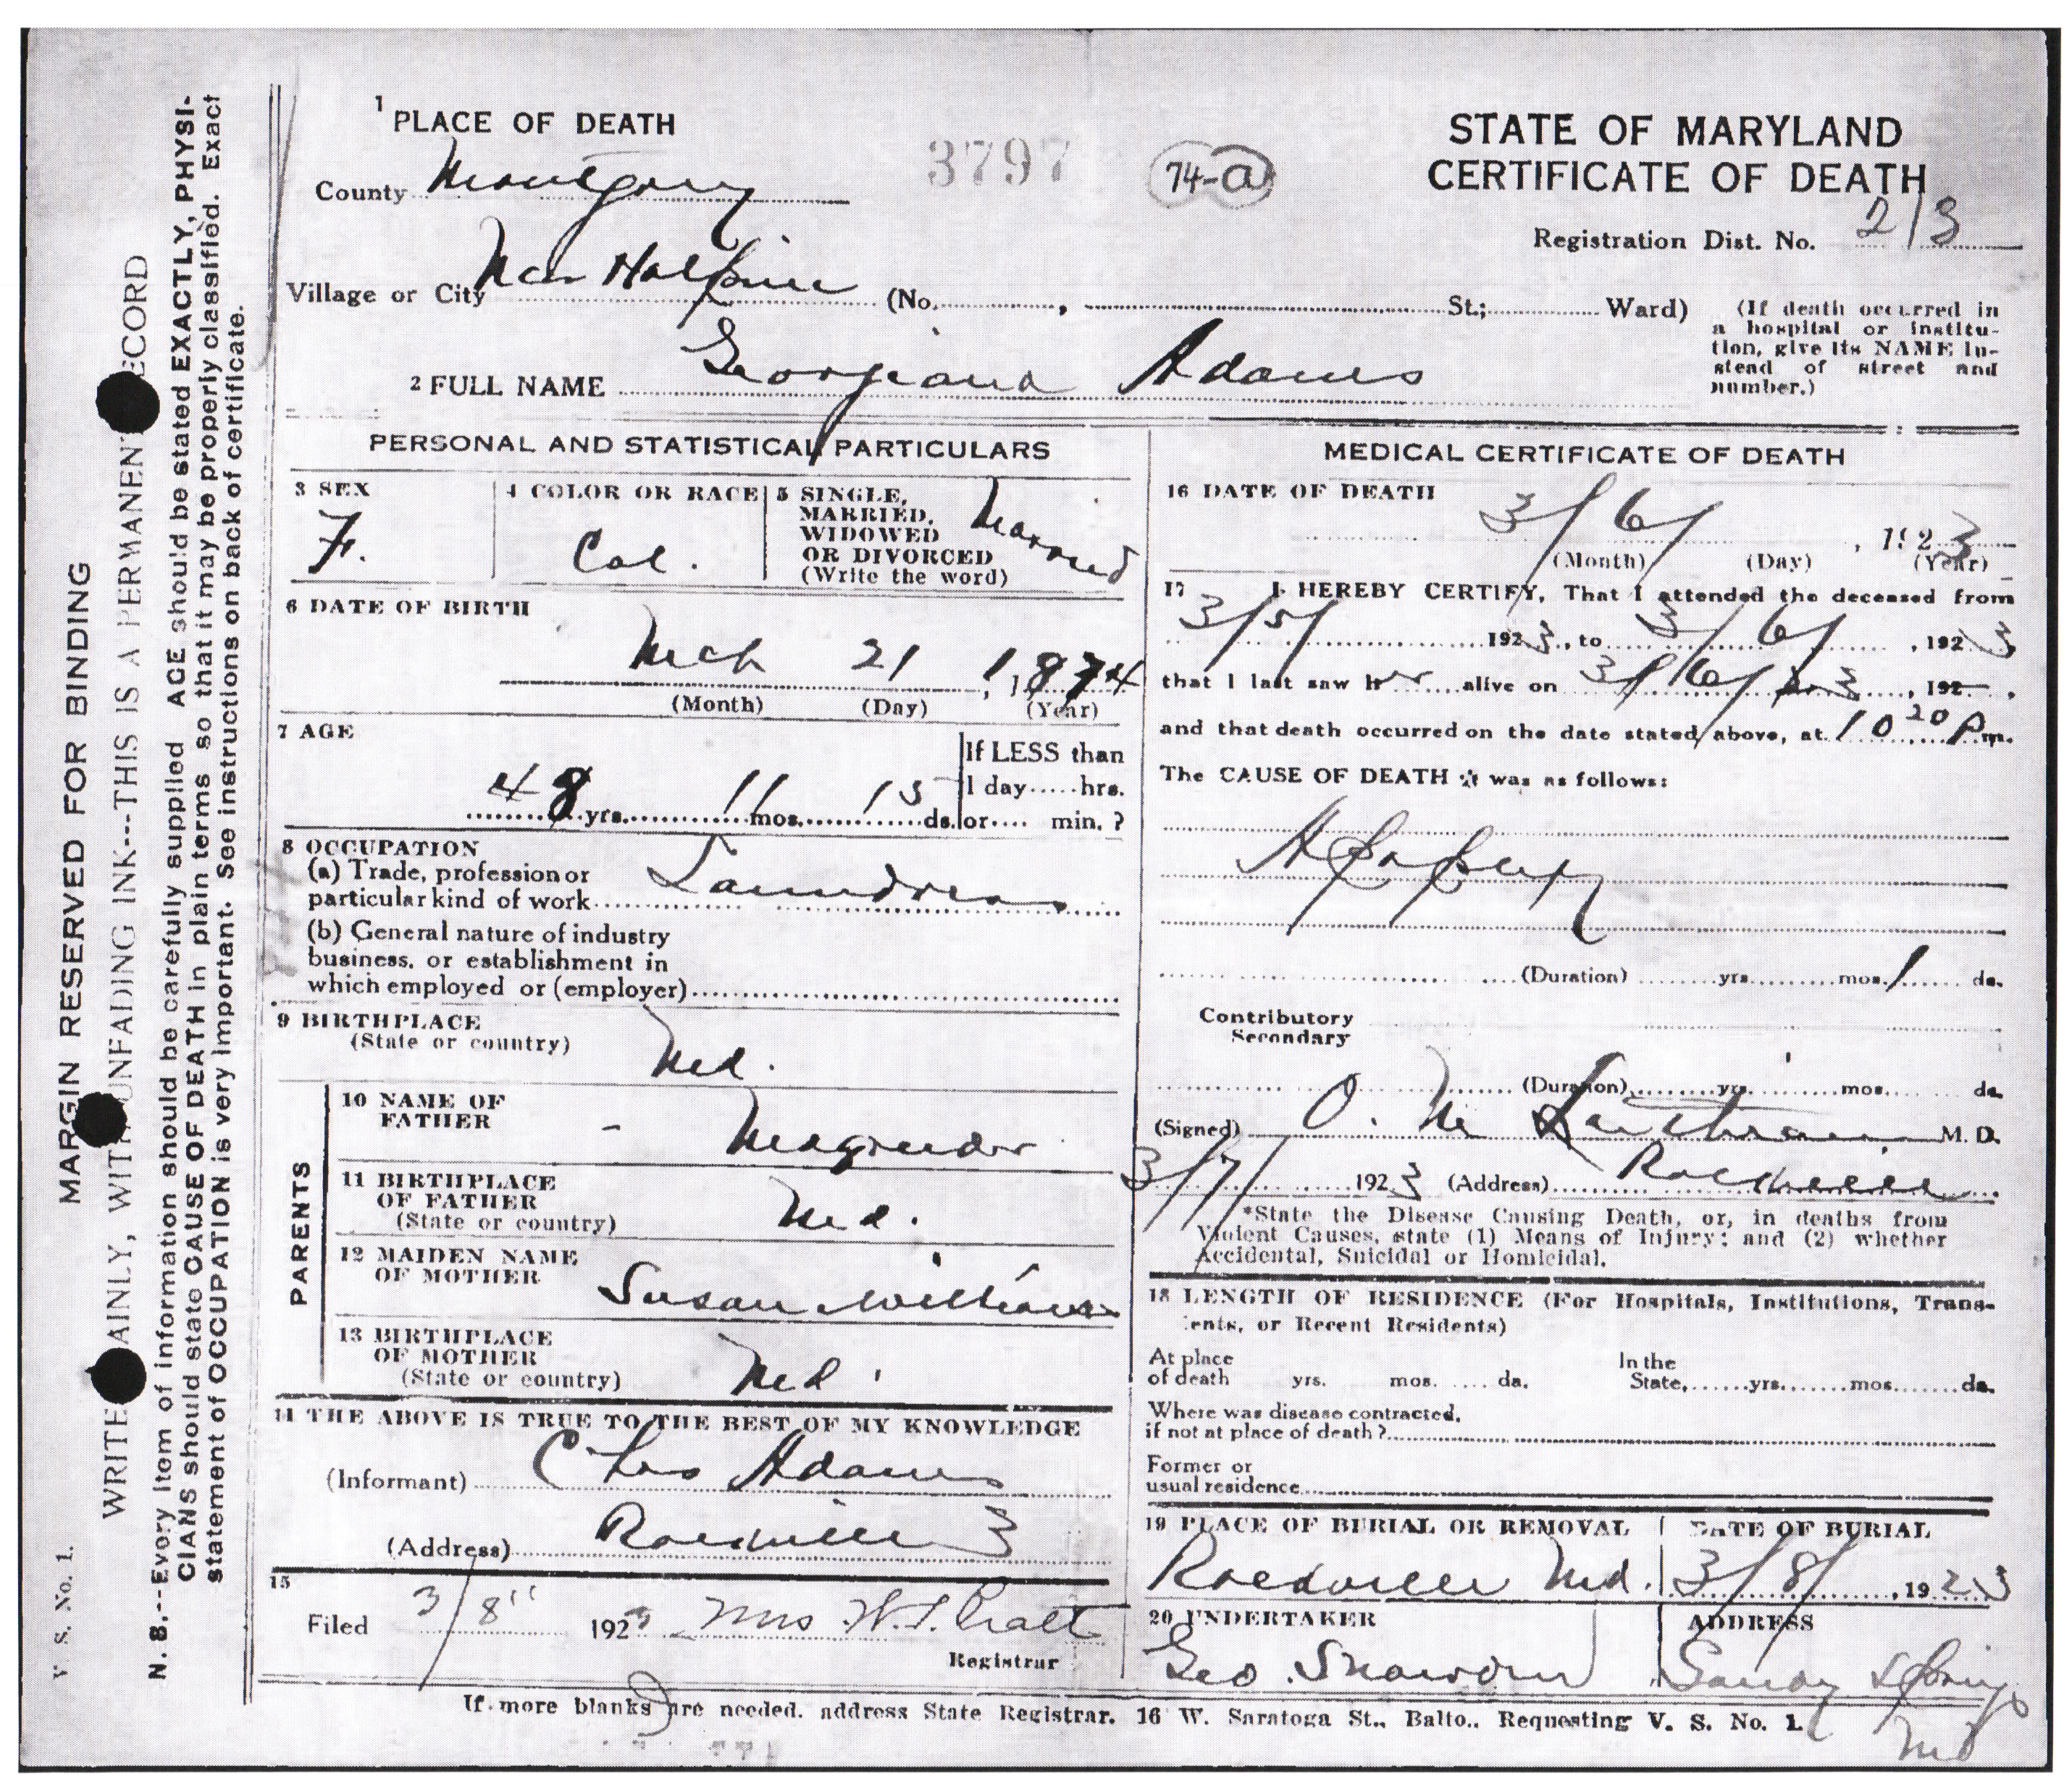 1 PLACE OF DEATH
County Montgomery
3797
74-a
STATE OF MARYLAND
CERTIFICATE OF DEATH
Registration Dist. No. 213
Village or City Near Halpine (No. , St.; Ward)
(If death occurred in
a hospital or institu-
tion, give its NAME in-
stead of street and
number.)
2 FULL NAME Georgiana Adams
PERSONAL AND STATISTICAL PARTICULARS
3 SEX
F.
4 COLOR OR RACE
Col.
5 SINGLE,
MARRIED,
WIDOWED
OR DIVORCED
(Write the word)
Married
6 DATE OF BIRTH
Mch 21, 1874
(Month) (Day) (Year)
7 AGE
48 yrs. 11 mos. 15 ds.
If LESS than
1 day.....hrs.
or.... min. ?
8 OCCUPATION
(a) Trade, profession or
particular kind of work Laundress
(b) General nature of industry
business, or establishment in
which employed or (employer)
9 BIRTHPLACE
(State or country)
Md.
PARENTS
10 NAME OF
FATHER
- Magruder
11 BIRTHPLACE
OF FATHER
(State or country)
Md.
12 MAIDEN NAME
OF MOTHER
Susan Williams
13 BIRTHPLACE
OF MOTHER
(State or country)
Md.
14 THE ABOVE IS TRUE TO THE BEST OF MY KNOWLEDGE
(Informant) Chas Adams
(Address) Rockville
15
Filed 3/8" 1923 Mrs W.T. Pratt
Registrar
MEDICAL CERTIFICATE OF DEATH
16 DATE OF DEATH
3/6/, 1923
(Month) (Day) (Year)
17 I HEREBY CERTIFY, That I attended the deceased from
3/5/ 1923, to 3/6/, 1923
that I last saw her alive on 3/6/ 3, 192 .
and that death occurred on the date stated above, at 10 20 P m.
The CAUSE OF DEATH * was as follows:
Apoplexy
(Duration) yrs. mos. 1 ds.
Contributory
Secondary
(Duration) yrs. mos. ds.
(Signed) O. M. Linthicum M. D.
3/7/ 1923 (Address) Rockville
*State the Disease Causing Death, or, in deaths from
Violent Causes, state (1) Means of Injury; and (2) whether
Accidental, Suicidal or Homicidal.
18 LENGTH OF RESIDENCE (For Hospitals, Institutions, Trans-
ients, or Recent Residents)
At place
of death yrs. mos. ds.
In the
State, yrs. mos. ds.
Where was disease contracted,
if not at place of death ?
Former or
usual residence
19 PLACE OF BURIAL OR REMOVAL
Rockville Md.
DATE OF BURIAL
3/8/, 1923
20 UNDERTAKER
Geo. Snowden
ADDRESS
Sandy Spring
Md
If more blanks are needed, address State Registrar, 16 W. Saratoga St., Balto., Requesting V. S. No. 1.
V. S. No. 1.
MARGIN RESERVED FOR BINDING
WRITE AINLY, WITH UNFADING INK---THIS IS A PERMANENT ECORD
N. B.---Every item of information should be carefully supplied AGE should be stated EXACTLY, PHYSI-
CIANS should state CAUSE OF DEATH in plain terms so that it may be properly classified. Exact
statement of OCCUPATION is very important. See instructions on back of certificate.